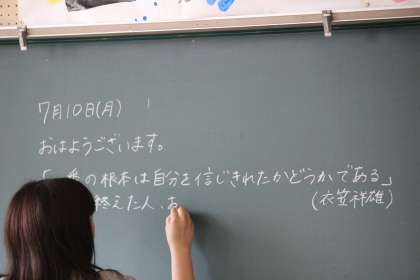 7月10日(月)
おはようございます。
「一番の根本は自分を信じきれたかどうかである」
(衣笠祥雄)
終えた人、お